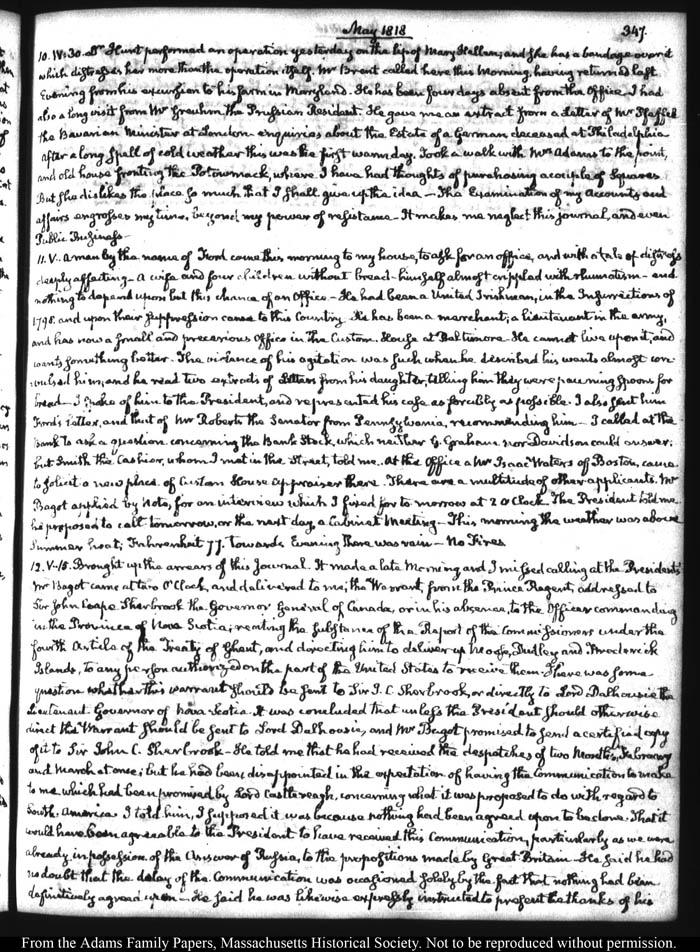 May 1818
347.
10. IV:30. Dr Hunt performed an operation yesterday on the lip of Mary Hellen; and she has a bandage over it
which distresses her more than the operation itself. Mr Brent called here this Morning, having returned last
Evening from his excursion to his farm in Maryland. He has been four days absent from the Office. I had
also a long visit from Mr Greuhm the Prussian Resident. He gave me an extract from a Letter of Mr Pfeffel
the Bavarian Minister at London enquiries about the Estate of a German deceased at Philadelphia
After a long spell of cold weather this was the first warm day. Took a walk with Mrs Adams to the point,
and old house fronting the Potowmack, where I have had thoughts of purchasing a couple of Squares
But she dislikes the place so much that I shall give up the idea — The Examination of my Accounts and
affairs engrosses my time, beyond my power of resistance — It makes me neglect this journal, and even
Public Business —
11. V. A man by the name of Ford came this morning to my house, to ask for an office, and with a tale of distress
deeply affecting — a wife and four children without bread — himself almost crippled with rhumatism — and
nothing to depend upon but this chance of an Office — He had been a United Irishman, in the Insurrections of
1798. and upon their suppression came to this Country. He has been a merchant; a lieutenant in the army,
and has now a small and precarious Office in the Custom House at Baltimore. He cannot live upon it, and
wants something better. The violence of his agitation was such when he described his wants almost con-
vulsed him; and he read two extracts of Letters from his daughter, telling him they were pawning spoons for
bread — I spoke of him to the President, and represented his case as forcibly as possible. I also sent him
Ford's Letter, and that of Mr Roberts the Senator from Pennsylvania, recommending him — I called at the
Bank to ask a question concerning the Bank Stock, which neither G. Graham nor Davidson could answer;
but Smith the Cashier, whom I met in the Street, told me. At the Office a Mr Isaac Waters of Boston, came
to solicit a new place of Custom House appraiser there. There are a multitude of other applicants. Mr
Bagot applied by Note, for an interview which I fixed for to morrow at 2 O'Clock. The President told me
he proposed to call tomorrow, or the next day a Cabinet Meeting — This morning the weather was above
Summer heat; Fahrenheit 77. Towards Evening there was rain — No Fires
12. V:15. Brought up the arrears of this Journal. It made a late Morning and I missed calling at the Presidents
Mr Bagot came at two O'Clock, and delivered to me, the Warrant, from the Prince Regent, addressed to
Sir John Coape Sherbrook the Governor General of Canada, or in his absence, to the Officer commanding
in the Province of Nova Scotia; reciting the substance of the Report of the Commissioners under the
fourth Article of the Treaty of Ghent, and directing him to deliver up Moose, Dudley and Frederick
Islands, to any person authorized on the part of the United States to receive them. There was some
question whether this warrant should be sent to Sir J. C. Sherbrook, or directly to Lord Dalhousie the
Lieutenant Governor of Nova Scotia. It was concluded that unless the President should otherwise
direct the Warrant should be sent to Lord Dalhousie, and Mr Bagot promised to send a certified copy
of it to Sir John C. Sherbrook — He told me that he had received the despatches of two Months, February
and March at once; but he had been disappointed in the expectation of having the Communication to make
to me which had been promised by Lord Castlereagh, concerning what it was proposed to do with regard to
South America. I told him, I supposed it was because nothing had been agreed upon to be done. That it
would have been agreeable to the President to have received this Communication, particularly as we were
already in possession of the Answer of Russia, to the propositions made by Great Britain — He said he had
no doubt that the delay of the Communication was occasioned solely by the fact that nothing had been
definitively agreed upon — He said he was likewise expressly instructed to present the thanks of his
From the Adams Family Papers, Massachusetts Historical Society. Not to be reproduced without permission.